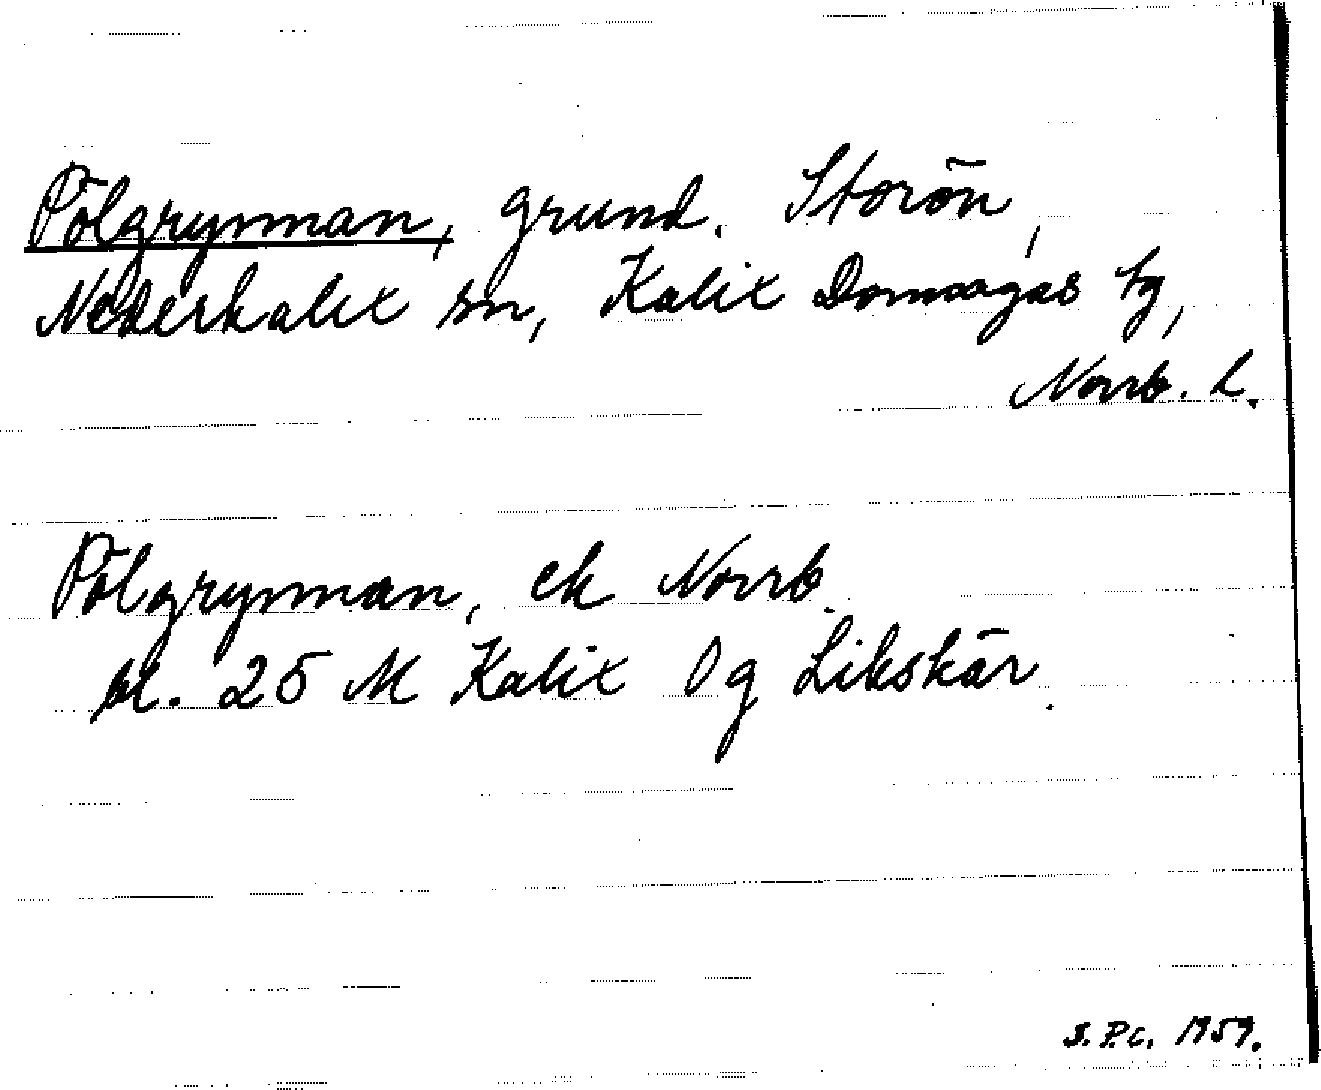 Pölgrynnan, grund. Storön,
Nederkalix sn, Kalix Domsagas tg,
Norrb. l.
Pölgrynnan, ek Norrb.
bl. 25 M Kalix Og Likskär.
S.P.c. 1959.